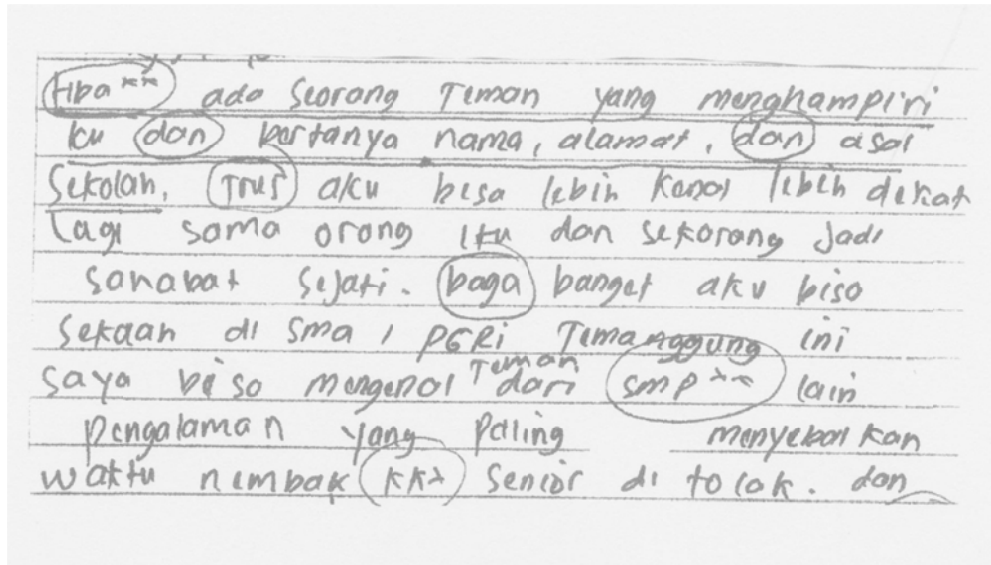 tiba ** ada seorang Teman yang menghampiri
ku dan bertanya nama, alamat, dan asal
Sekolah. Trus aku bisa lebih kenal lebih dekat
lagi sama orang itu dan sekarang jadi
sahabat sejati. baga banget aku bisa
Sekaah di Sma 1 PGRI Temanggung ini
Teman
saya biso mengenal dari SMP ** lain
pengalaman yang paling menyebalkan
waktu nembak kk* senior di tolak. dan